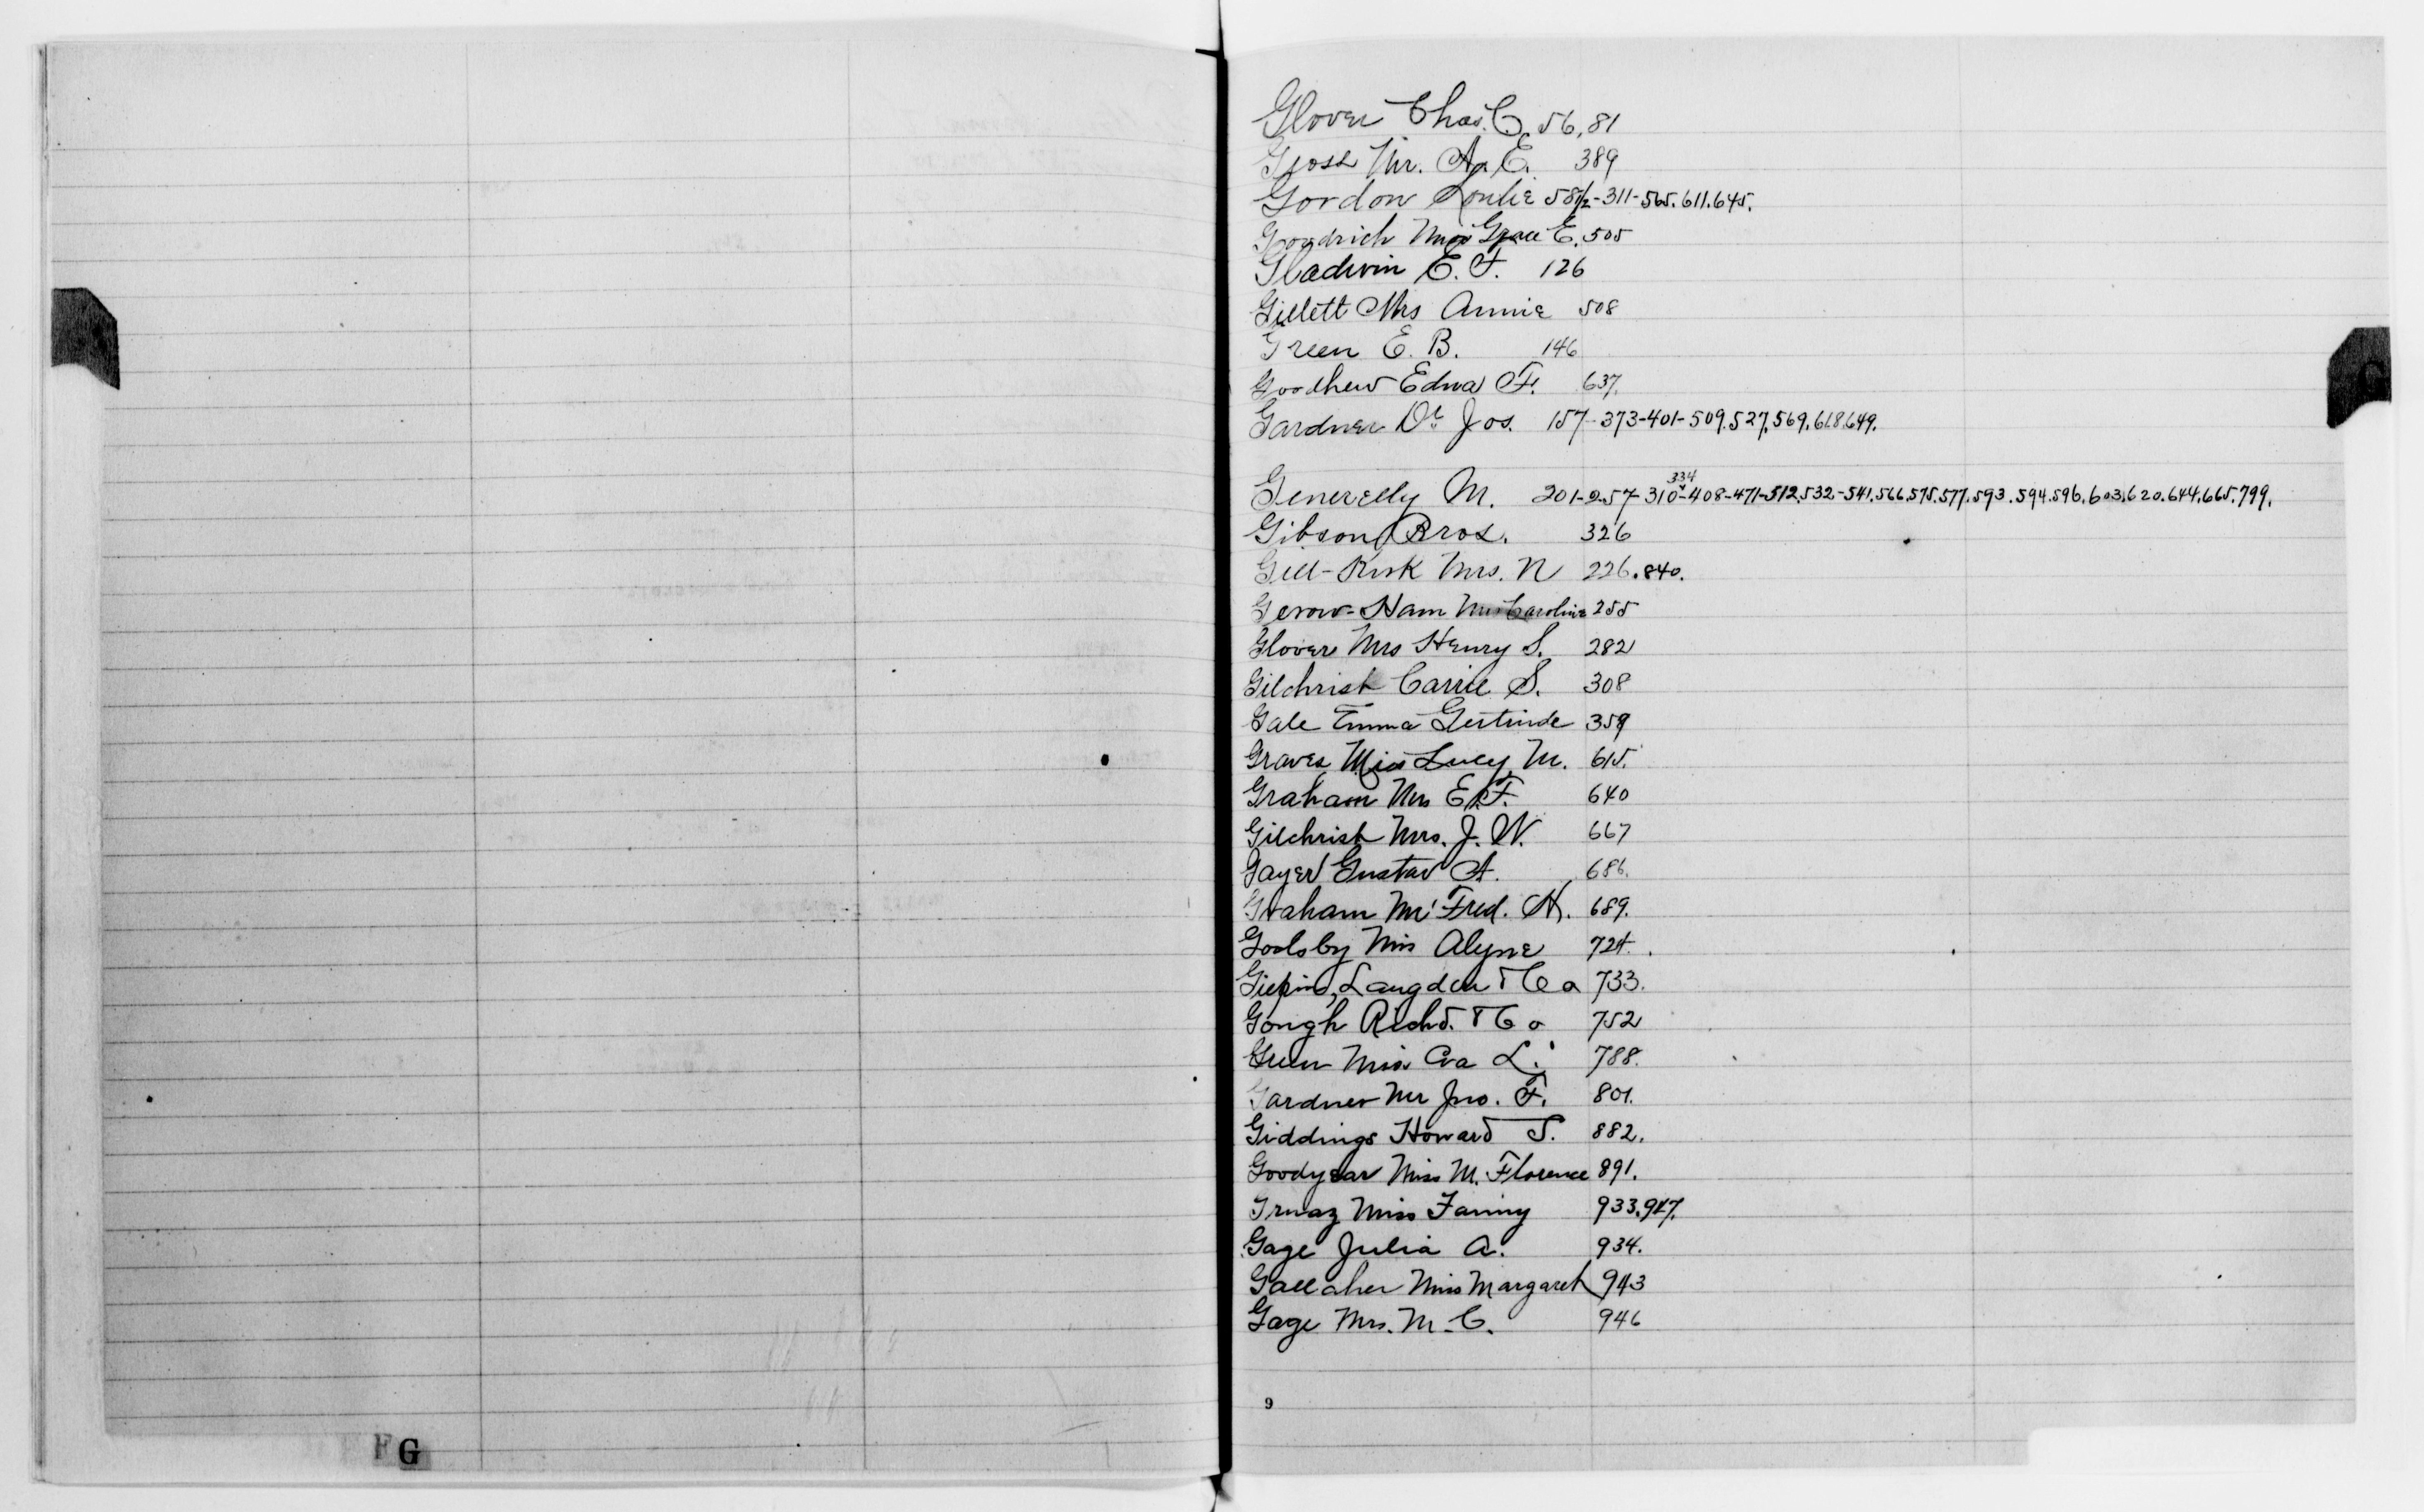 Glover Chas. C. 56, 81
Gross Mr. A. E. 389
Gordon Loulie 58½-311-565.611.645.
Goodrich Miss Grace E. 505
Gladwin E. F. 126
Gillett Mrs Annie 508
Green E. B. 146
Goodhew Edna F. 637.
Gardner Dr. Jos. 157-373-401-509.527.569.618.649.
334
Generelly M. 201-257-310-408-471-512.532-541.566.575.577.593.594.596.603.620.644.665.799.
Gibson Bros. 326
Gill-Kirk Mrs. N 226.840.
Gerow-Ham Mrs Caroline 255
Glover Mrs Henry S. 282
Gilchrist Carrie S. 308
Gale Emma Gertrude 359
Graves Miss Lucy M. 615.
Graham Mrs E. F. 640
Gilchrist Mrs. J. W. 667
Gayer Gustav A. 686.
Graham Mr. Fred. H. 689.
Goolsby Miss Alyne 724.
Langdon & Co 733.
Gough Richd. & Co 752
Green Miss Eva L. 788.
Gardner Mr Jno. F. 801.
Giddings Howard S. 882.
Goodyear Miss M. Florence 891.
Miss Fanny 933.947.
Gage Julia A. 934.
Gallaher Miss Margaret 943
Gage Mrs. M. C. 946
9
F G